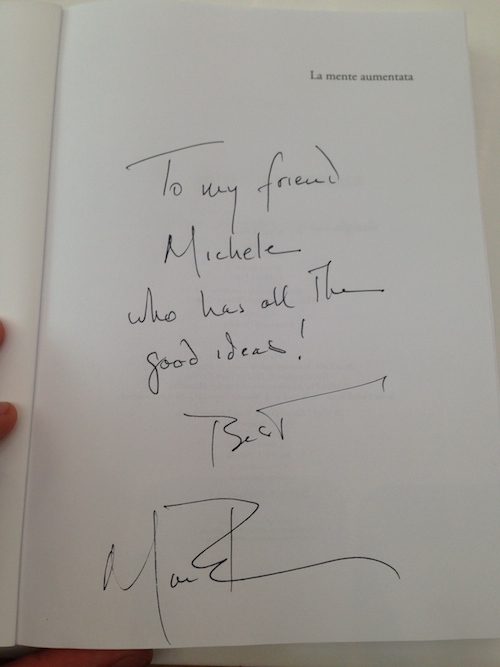 La mente aumentata
To my friend
Michele
who has all The
good ideas!
Best